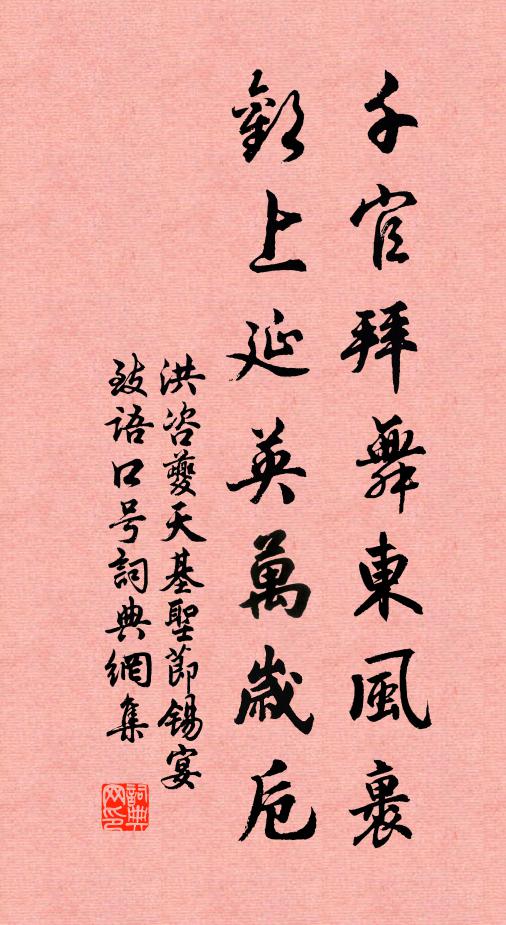 千官拜舞東風裏
歡上延英萬歲卮
洪咨夔天基聖節錫宴
致語口号詞典網集
詞典网印